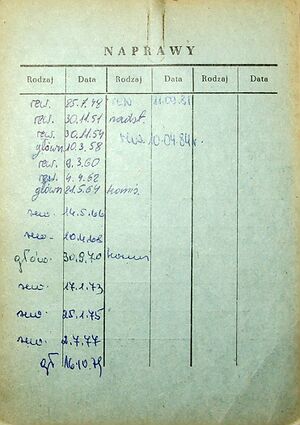 NAPRAWY
Rodzaj Data Rodzaj Data Rodzaj Data
rew. 25.1.48 rew. 11.04.81
rew. 30.11.51 nadst.
rew. 30.11.54 rew. 10.04.84r.
główn 10.3.58
rew. 9.3.60
rew. 4.4.62
główn 21.5.64 komis.
rew. 14.5.66
rew. 10.4.68
główn. 30.9.70
rew. 17.1.73
rew. 25.1.75
rew. 2.7.77
gł 16.10.79